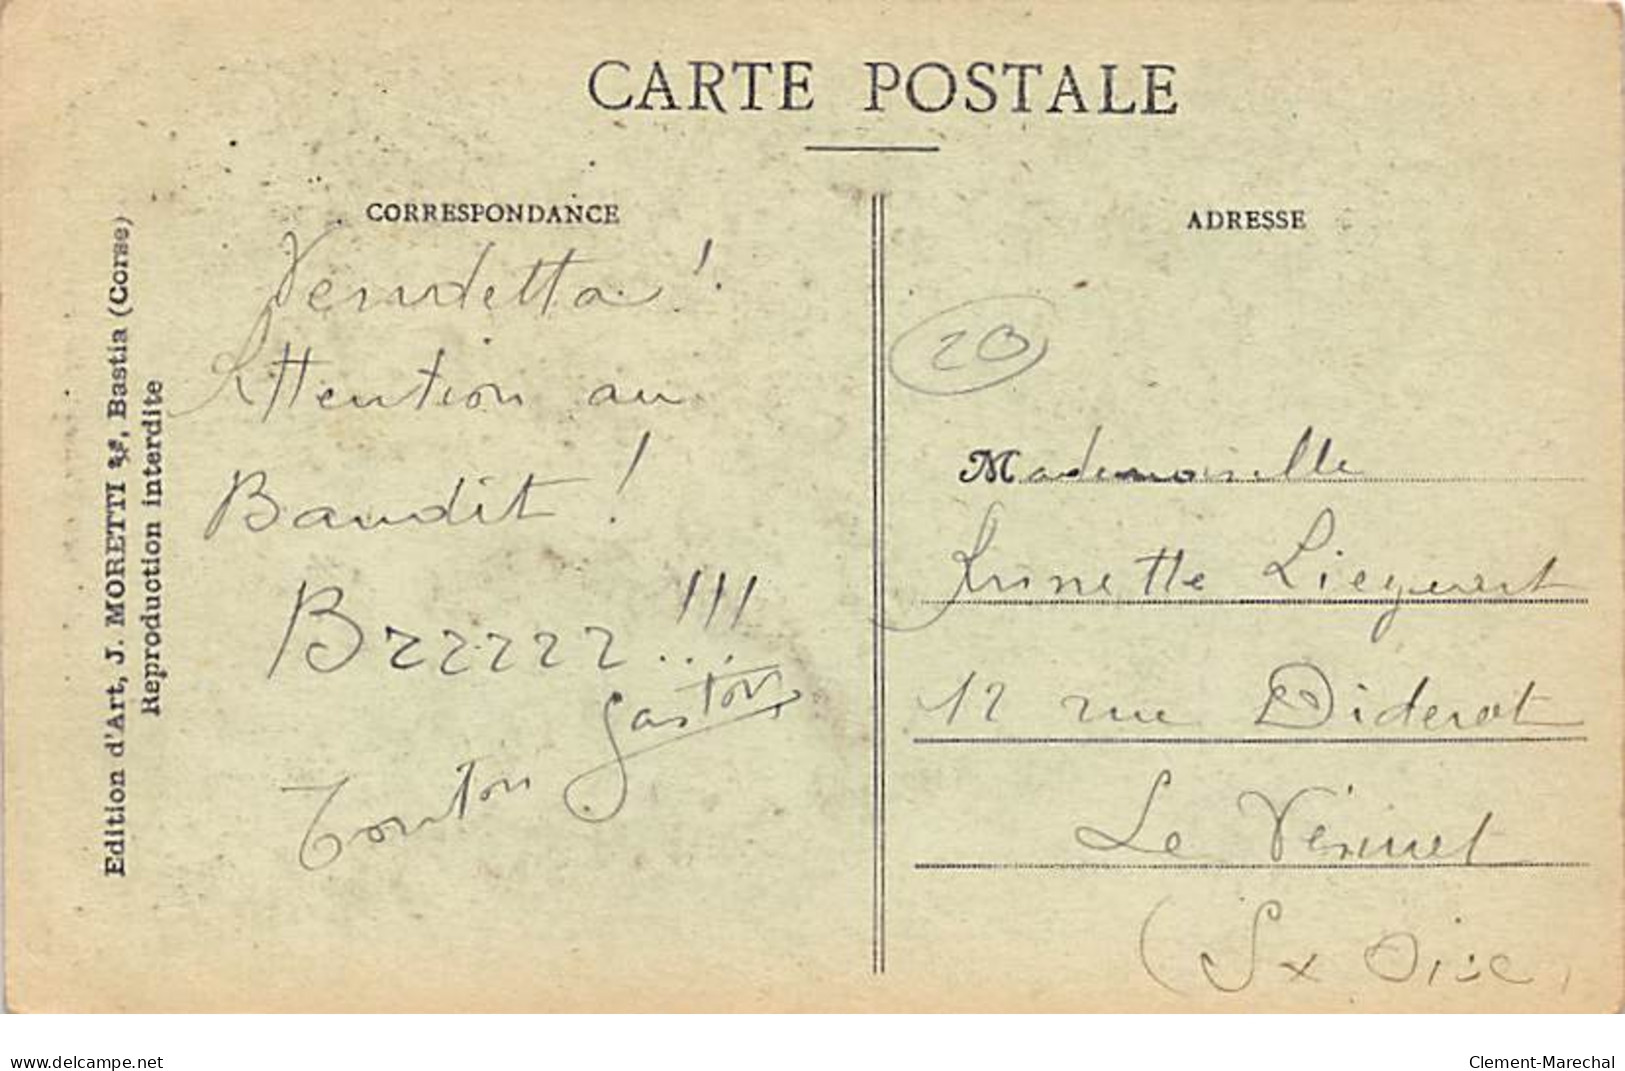 CARTE POSTALE
CORRESPONDANCE
Vendetta !
Attention au
Bandit !
Brrrrr..!!!
Tonton Gaston
Edition d'Art, J. MORETTI, Bastia (Corse)
Reproduction interdite
ADRESSE
20
Mademoiselle
Annette
12 rue Diderot
Le Vésinet
(S x Oise)
delcampe.net
Clement-Marechal